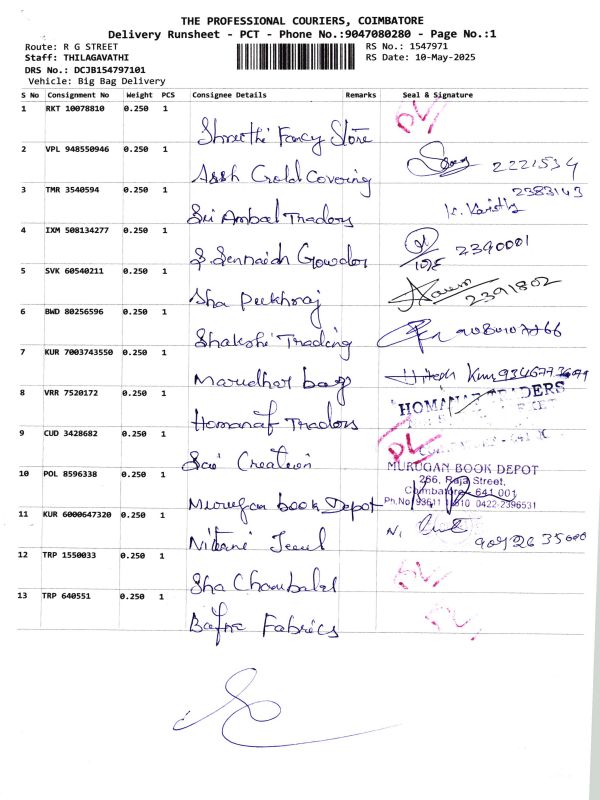 THE PROFESSIONAL COURIERS, COIMBATORE
Delivery Runsheet - PCT - Phone No.:9047080280 - Page No.:1
Route: R G STREET RS No.: 1547971
Staff: THILAGAVATHI RS Date: 10-May-2025
DRS No.: DCJB154797101
Vehicle: Big Bag Delivery
S No Consignment No Weight PCS Consignee Details Remarks Seal & Signature
1 RKT 10078810 0.250 1 DL
Fancy Store
2 VPL 948550946 0.250 1 2221534
Assh Gold Covering
3 TMR 3540594 0.250 1 2383143
Sri Ambal Traders
4 IXM 508134277 0.250 1 2390001
S. Sennaiah Gowder
5 SVK 60540211 0.250 1 2391802
Sha Peekhraj
6 BWD 80256596 0.250 1
Shakshi Trading
7 KUR 7003743550 0.250 1 Hitesh
Marudhar bag
8 VRR 7520172 0.250 1 HOMANAF TRADERS
Homanaf Traders
9 CUD 3428682 0.250 1 DL
Sai Creation
MURUGAN BOOK DEPOT
10 POL 8596338 0.250 1 266, Raja Street,
Coimbatore - 641 001
Murugan book Depot Ph.No 0422-2396531
11 KUR 6000647320 0.250 1 N.
12 TRP 1550033 0.250 1 DL
Sha
13 TRP 640551 0.250 1 DL
Bafna Fabrics